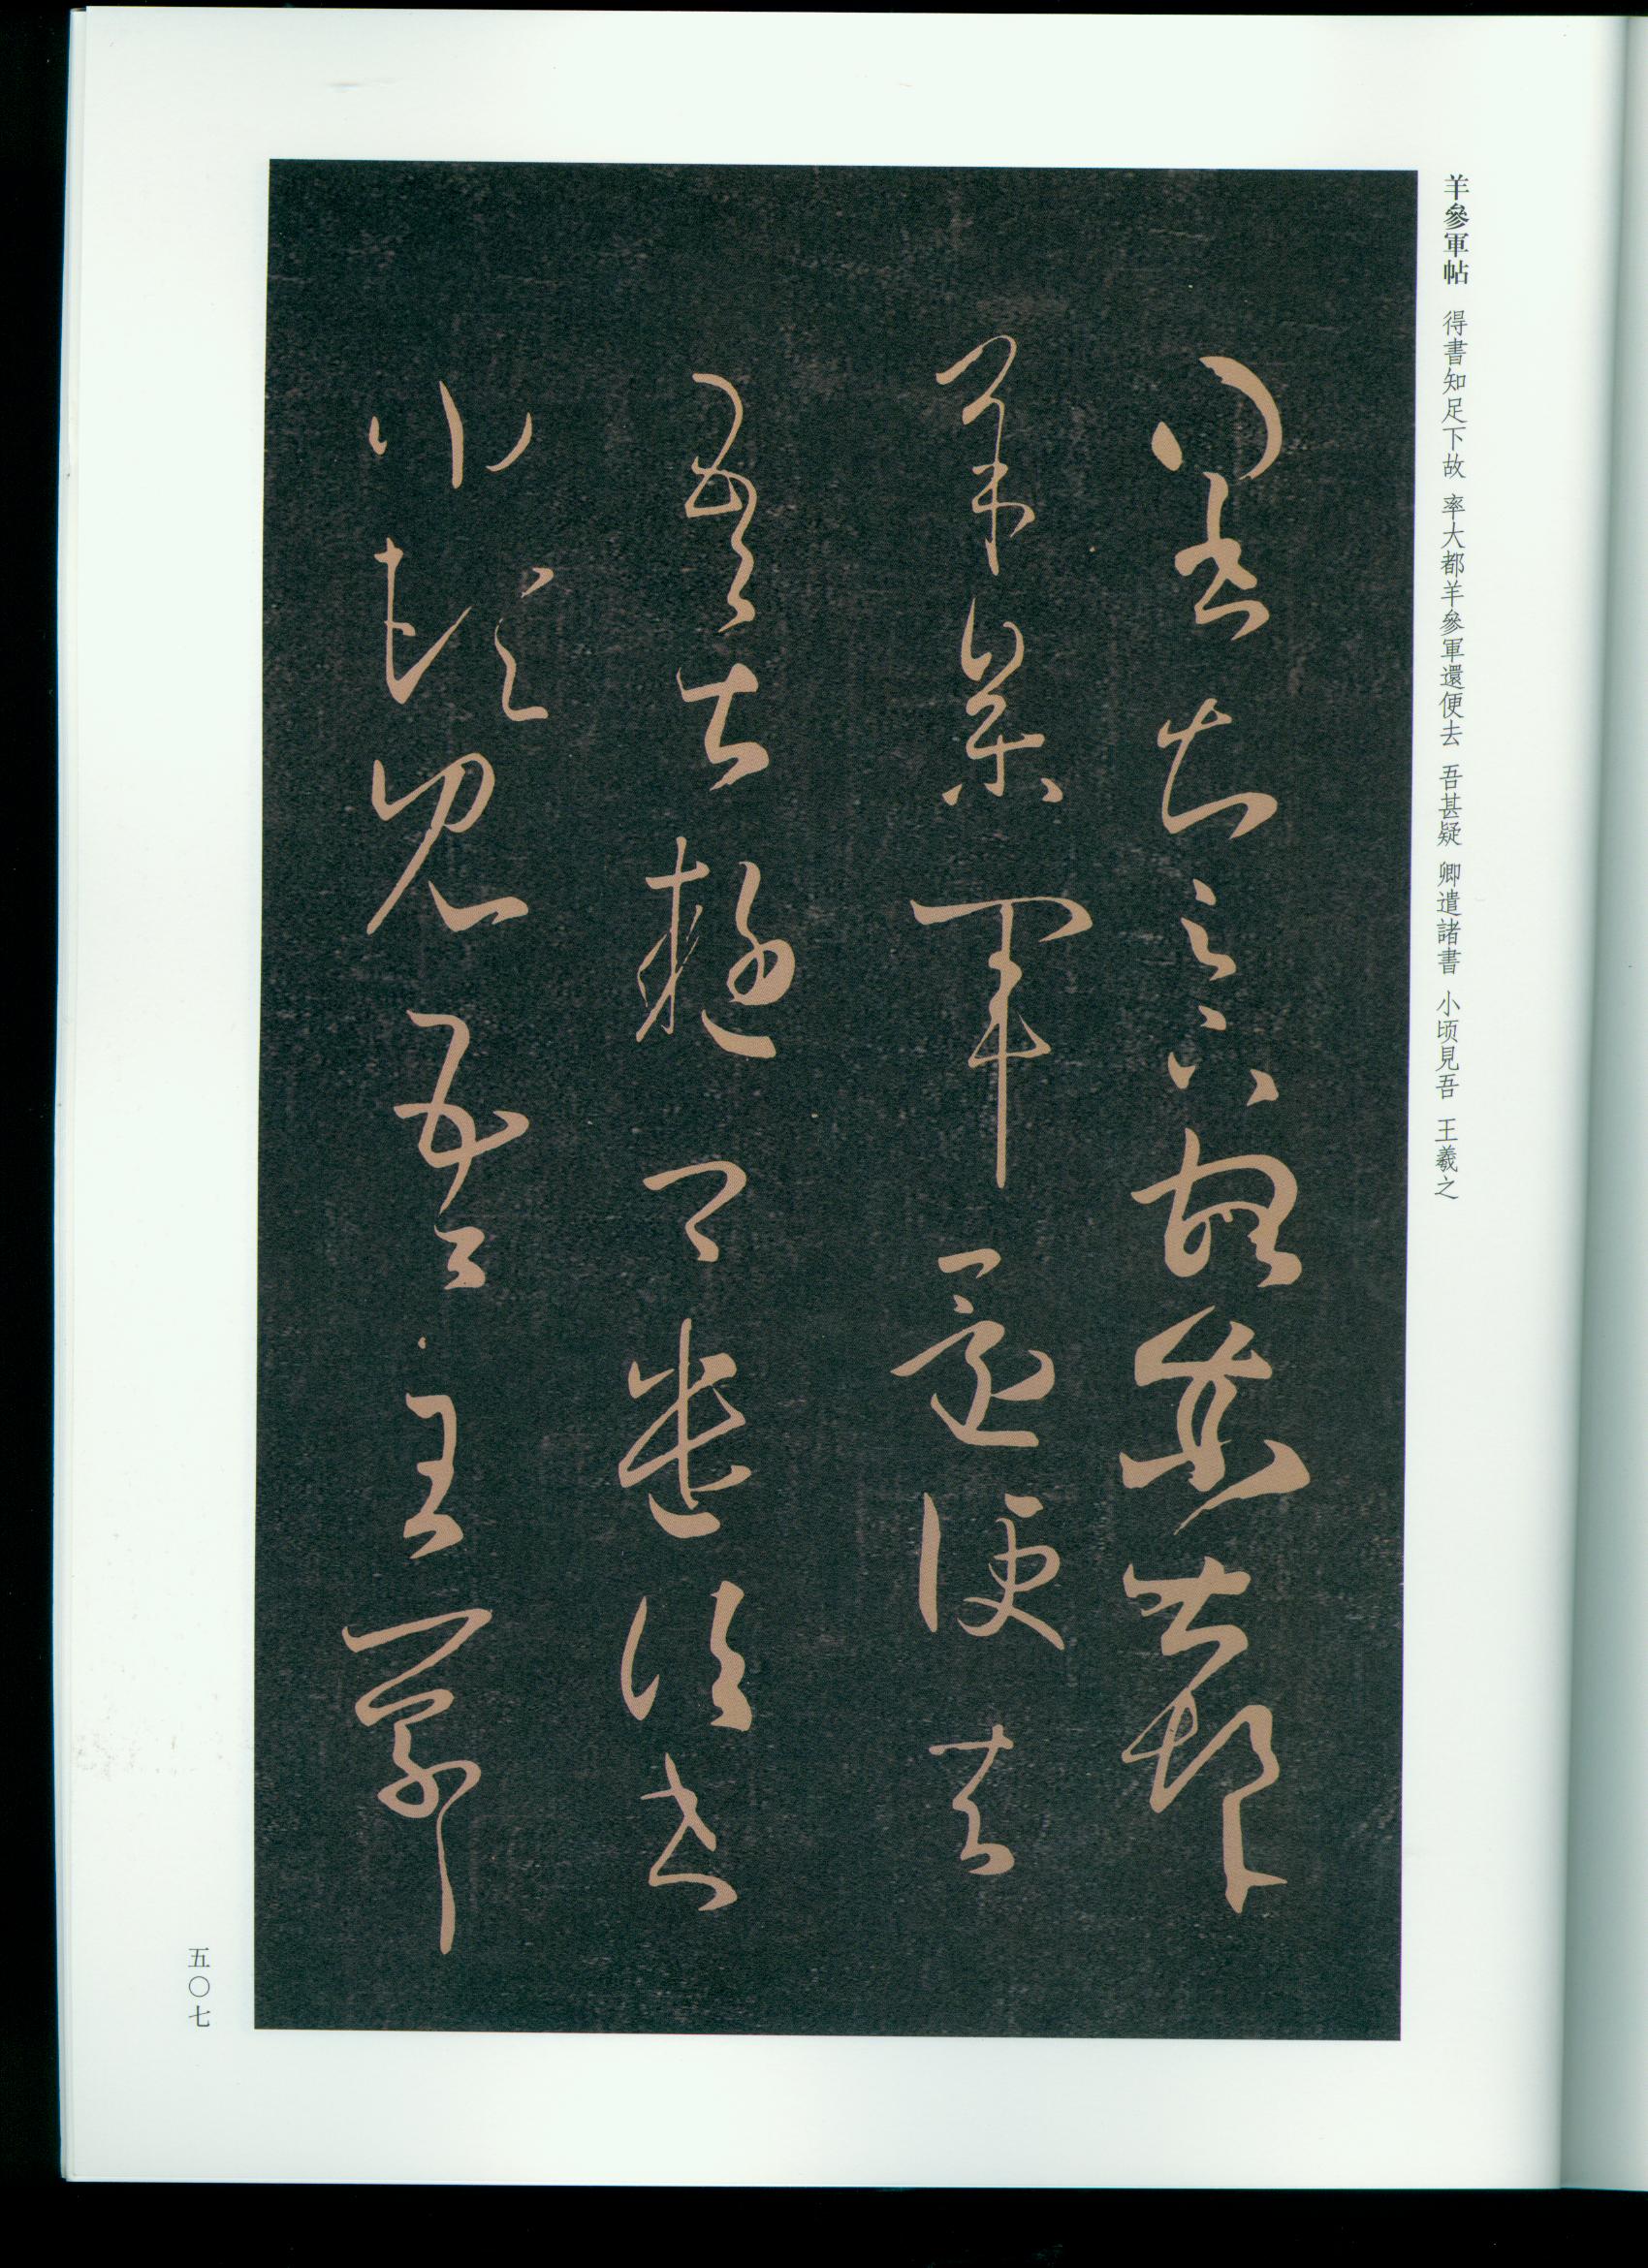 羊參軍帖 得書知足下故 率大都羊參軍還便去 吾甚疑 卿遣諸書 小顷見吾 王羲之
得書知足下故率大都
羊參軍還便去
吾甚疑卿遣諸書
小頃見吾王羲之
五〇七